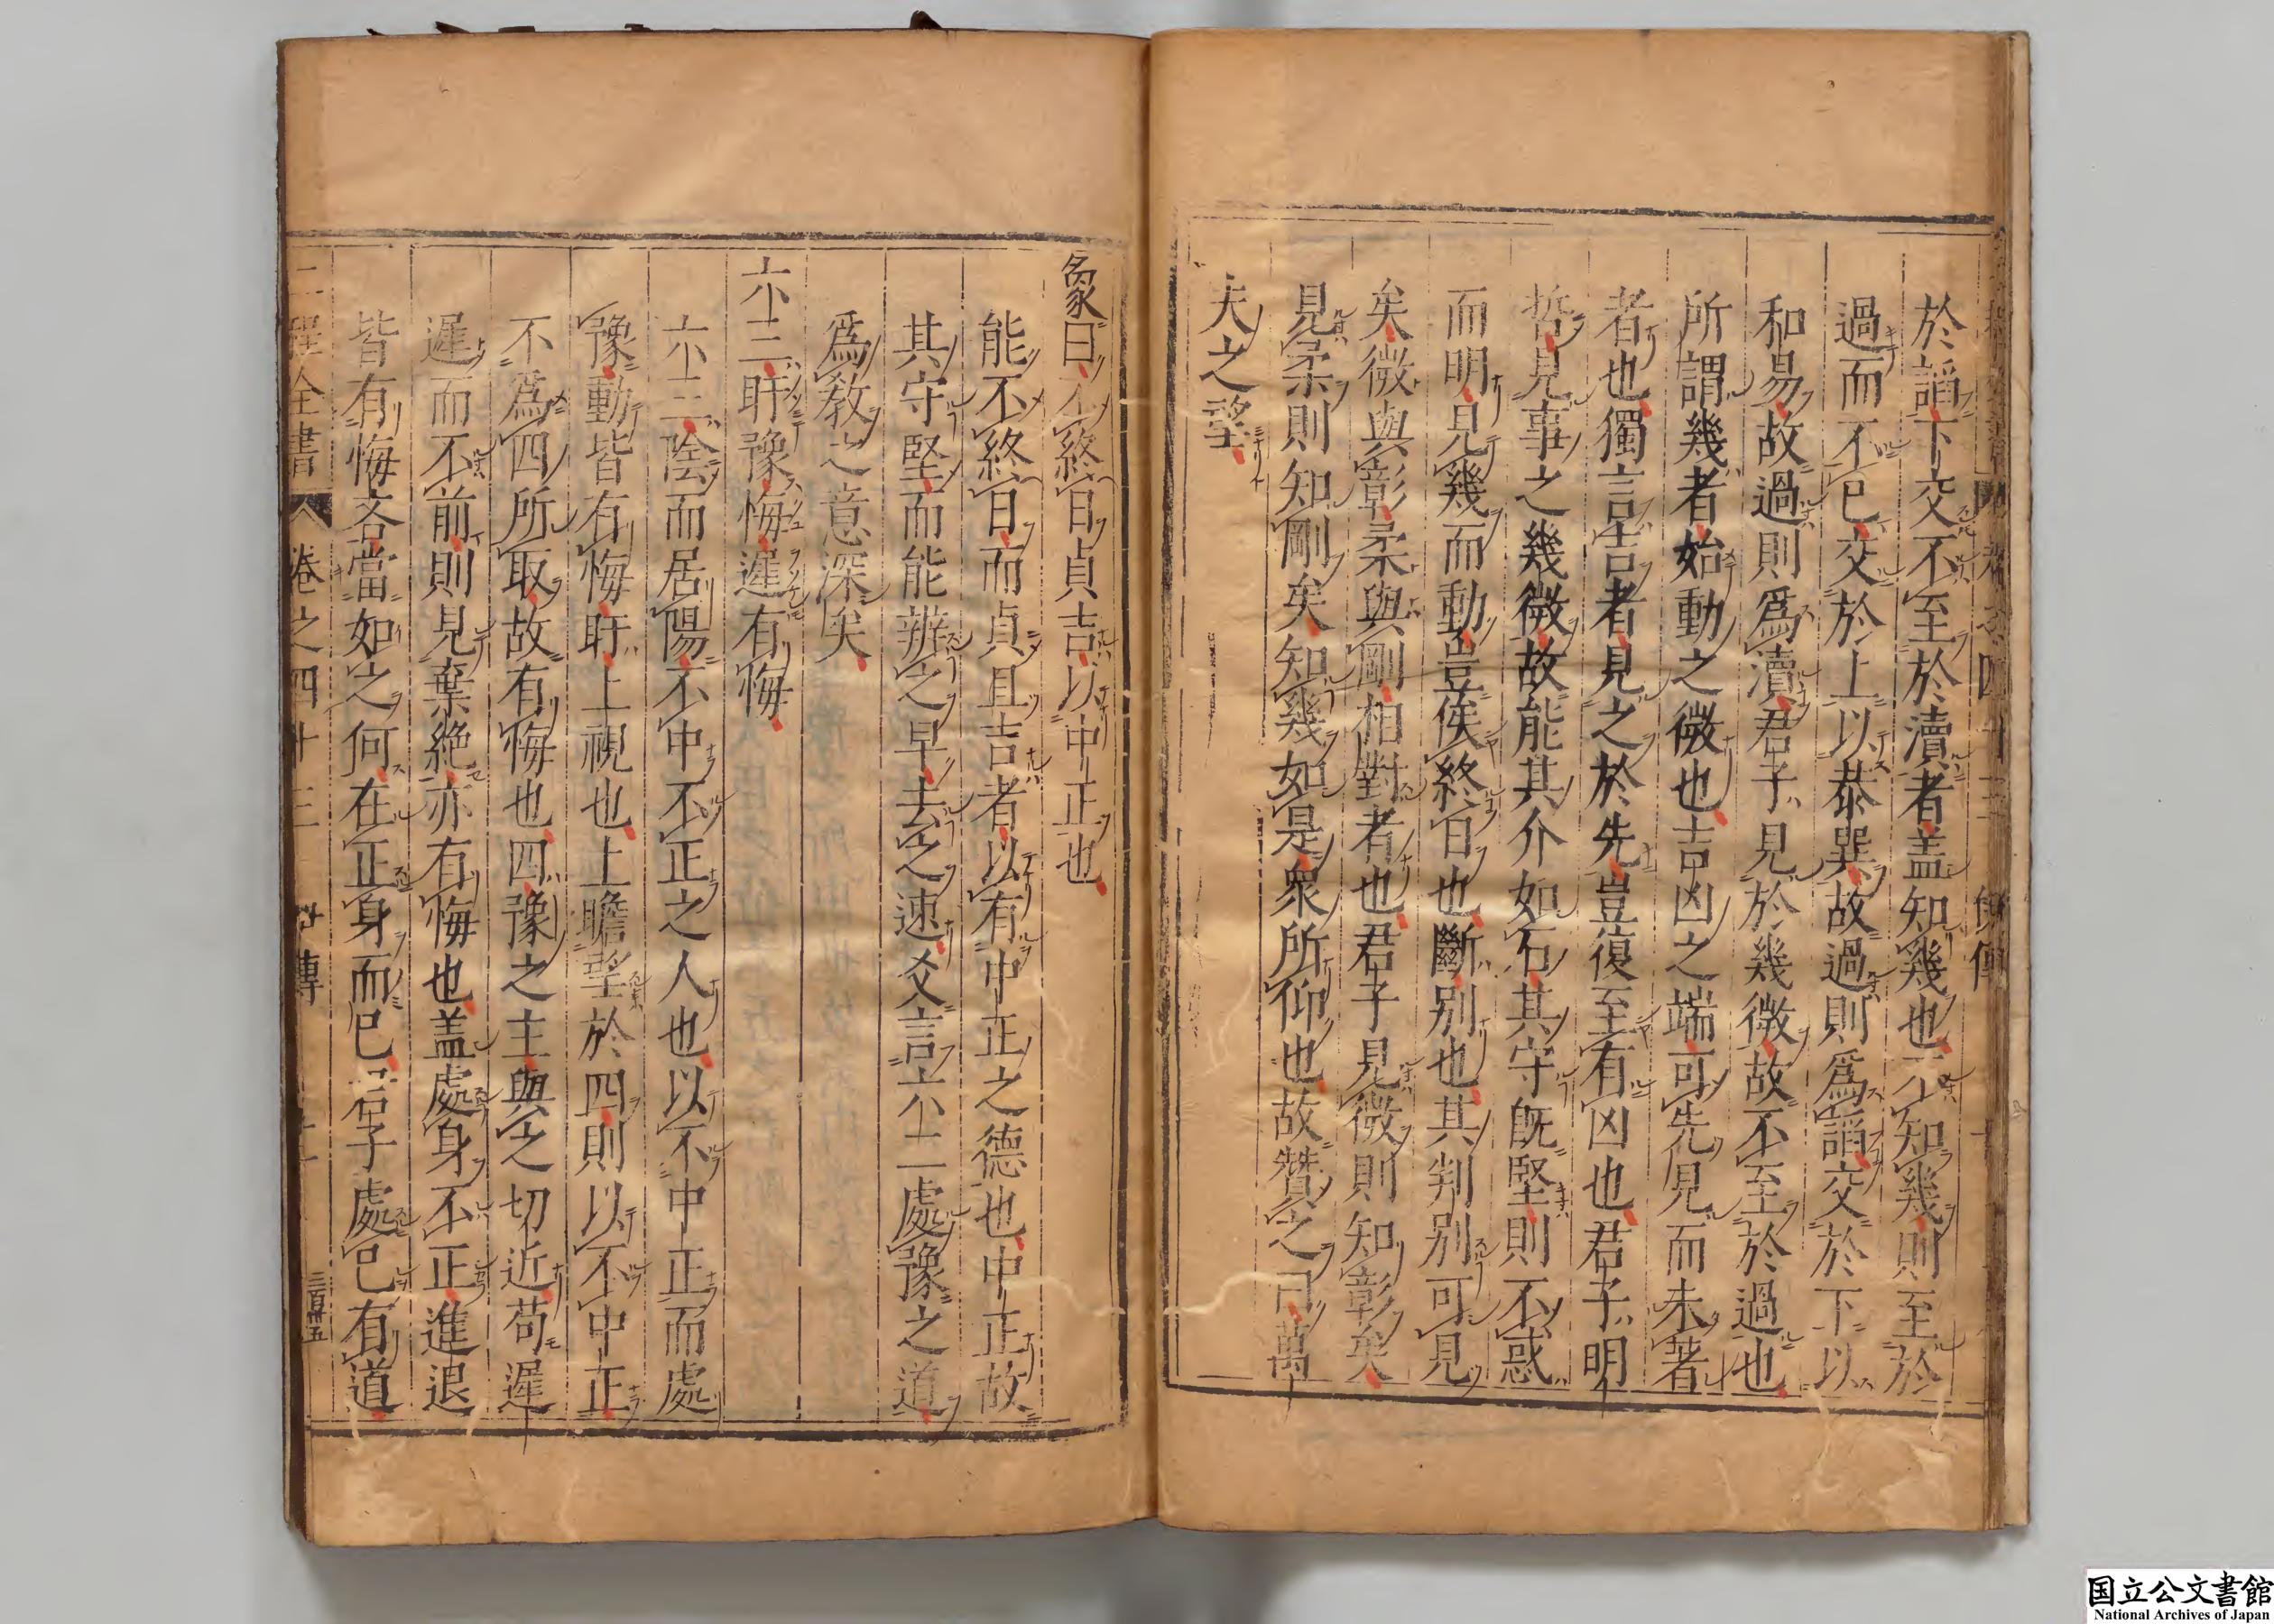 於諂下交不至於瀆者盖知幾也不知幾則至於
過而不已交於上以恭巽故過則爲諂交於下以
和易故過則爲瀆君子見於幾微故不至於過也
所謂幾者始動之微也吉凶之端可先見而未著
者也獨言吉者見之於先豈復至有凶也君子明
哲見事之幾微故能其介如石其守旣堅則不惑
而明見幾而動豈俟終日也斷別也其判別可見
矣微與彰柔與剛相對者也君子見微則知彰矣
見柔則知剛矣知幾如是衆所仰也故贊之曰萬
夫之望
象曰不終日貞吉以中正也
能不終日而貞且吉者以有中正之德也中正故
其守堅而能辨之早去之速爻言六二處豫之道
爲敎之意深矣
六三盱豫悔遲有悔
六三陰而居陽不中不正之人也以不中正而處
豫動皆有悔盱上視也上瞻望於四則以不中正
不爲四所取故有悔也四豫之主與之切近苟遲
遲而不前則見棄絶亦有悔也盖處身不正進退
皆有悔吝當如之何在正身而已君子處已有道
二程全書 卷之四十三 傳
国立公文書館
National Archives of Japan